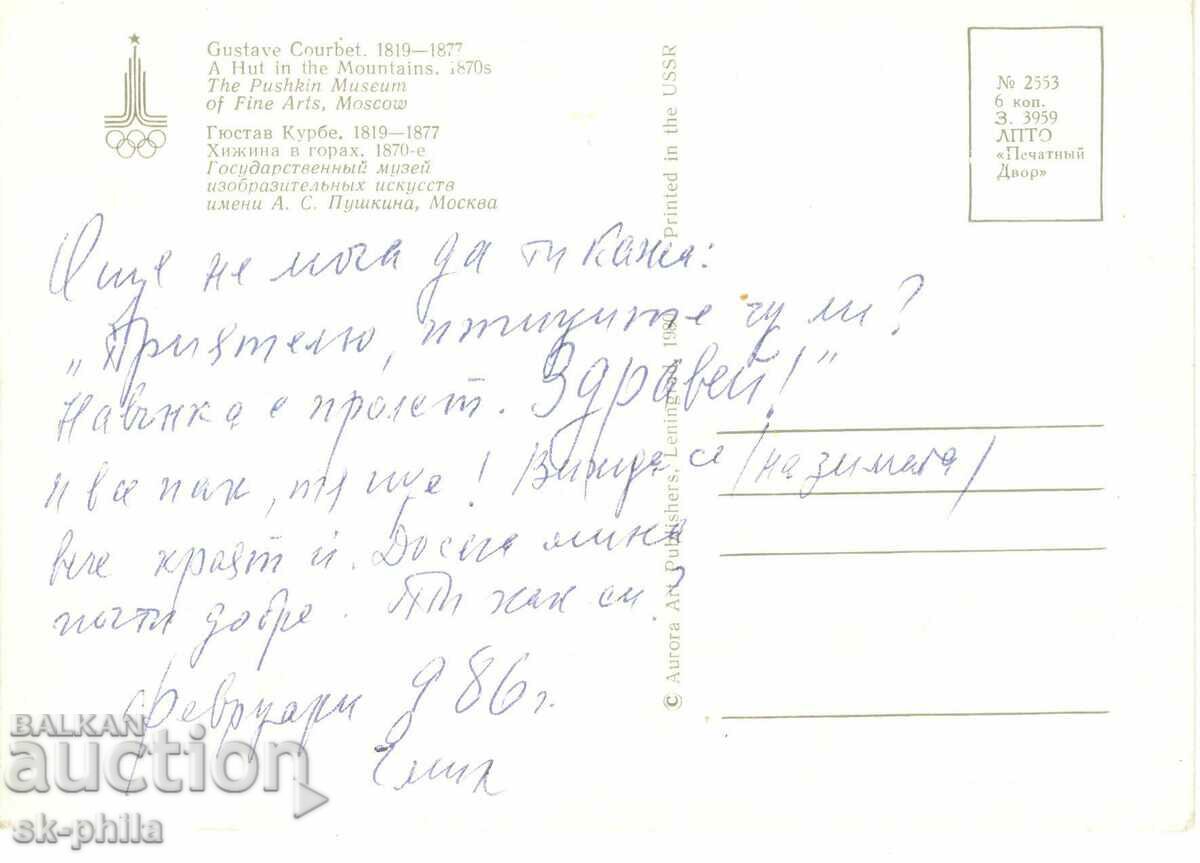 Gustave Courbet. 1819—1877
A Hut in the Mountains. 1870s
The Pushkin Museum
of Fine Arts, Moscow
Гюстав Курбе. 1819—1877
Хижина в горах. 1870-е
Государственный музей
изобразительных искусств
имени А. С. Пушкина, Москва
№ 2553
6 коп.
З. 3959
ЛПТО
«Печатный
Двор»
© Aurora Art Publishers, Leningrad, 1980 Printed in the USSR
Още не мога да ти кажа:
„Приятелю, птиците чу ли?
Навънка е пролет. Здравей!"
И все пак, тя ще! Вижда се /на зимата/
вече краят ѝ. Досега мина
почти добре. Ти как си?
Февруари 986 г.
BALKAN
auction
sk-phila